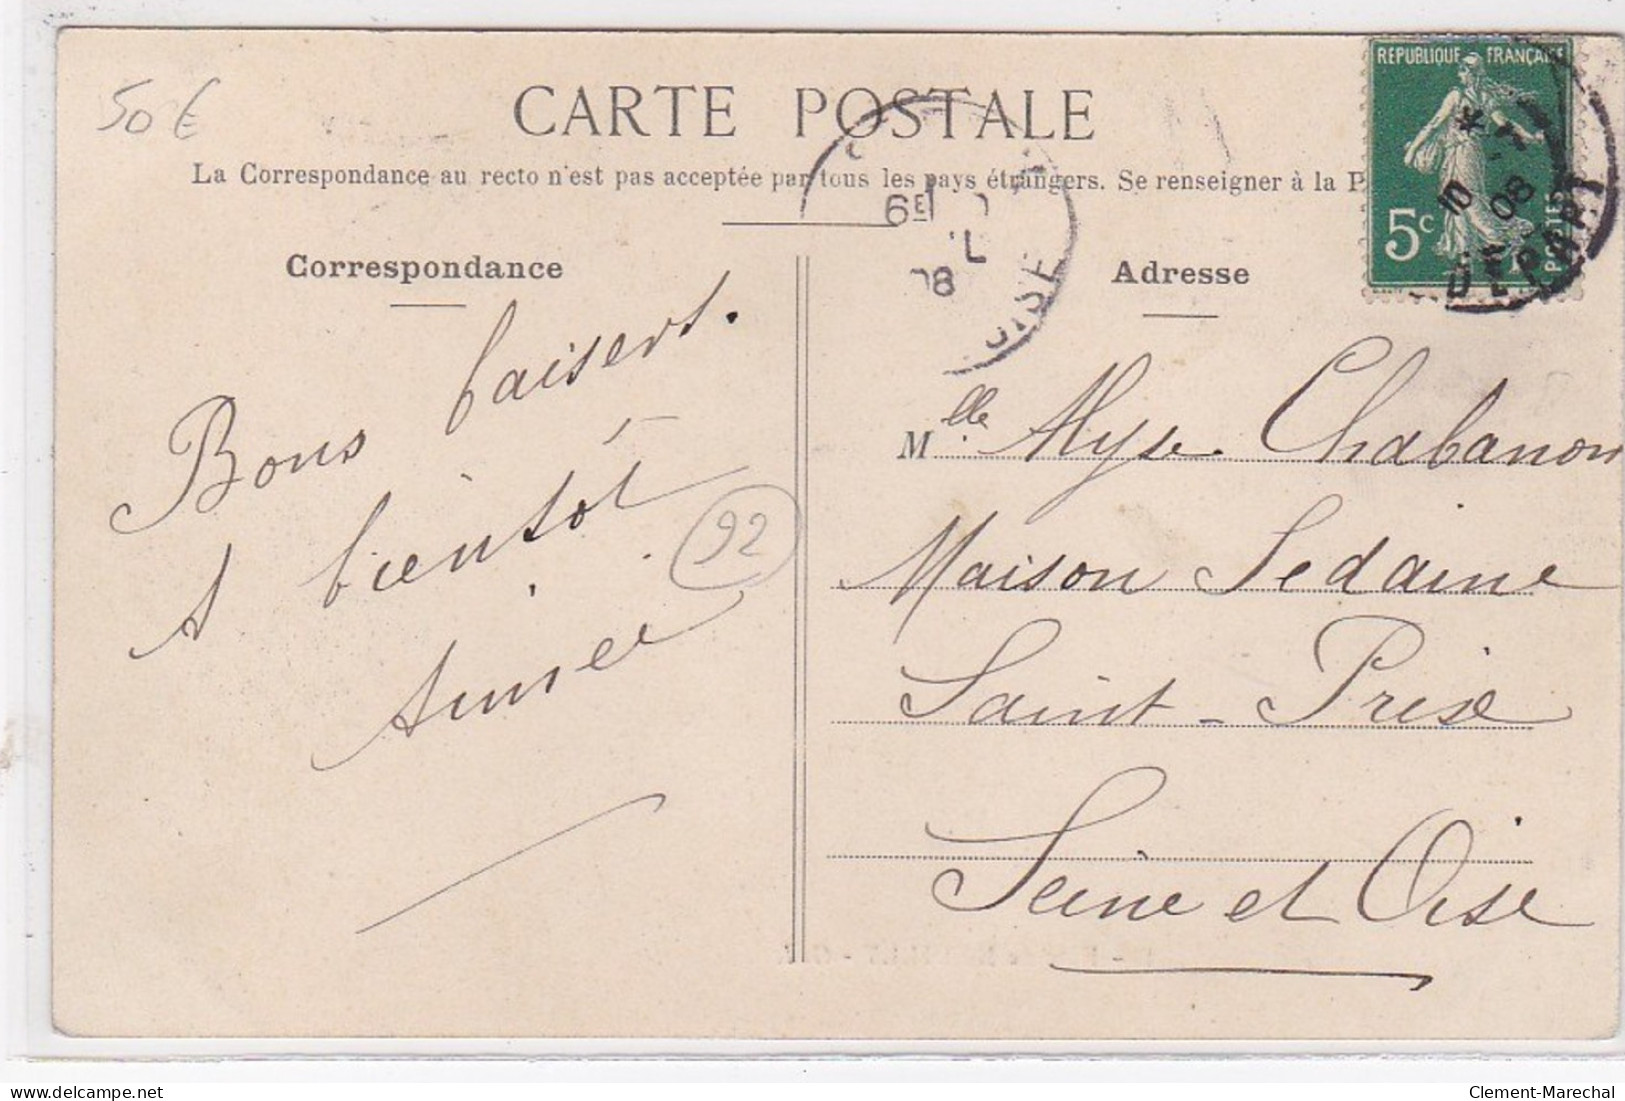 50 €
CARTE POSTALE
La Correspondance au recto n'est pas acceptée par tous les pays étrangers. Se renseigner à la P
REPUBLIQUE FRANÇAISE
5c
POSTES
10 * 7
08
DEPART
6E
08
OISE
Correspondance
Bons baisers.
A bientôt
Aimée
92
Adresse
Mlle. Alyse. Chabanon
Maison Sedaine
Saint-Prix
Seine et Oise
Clement-Marechal
www.delcampe.net